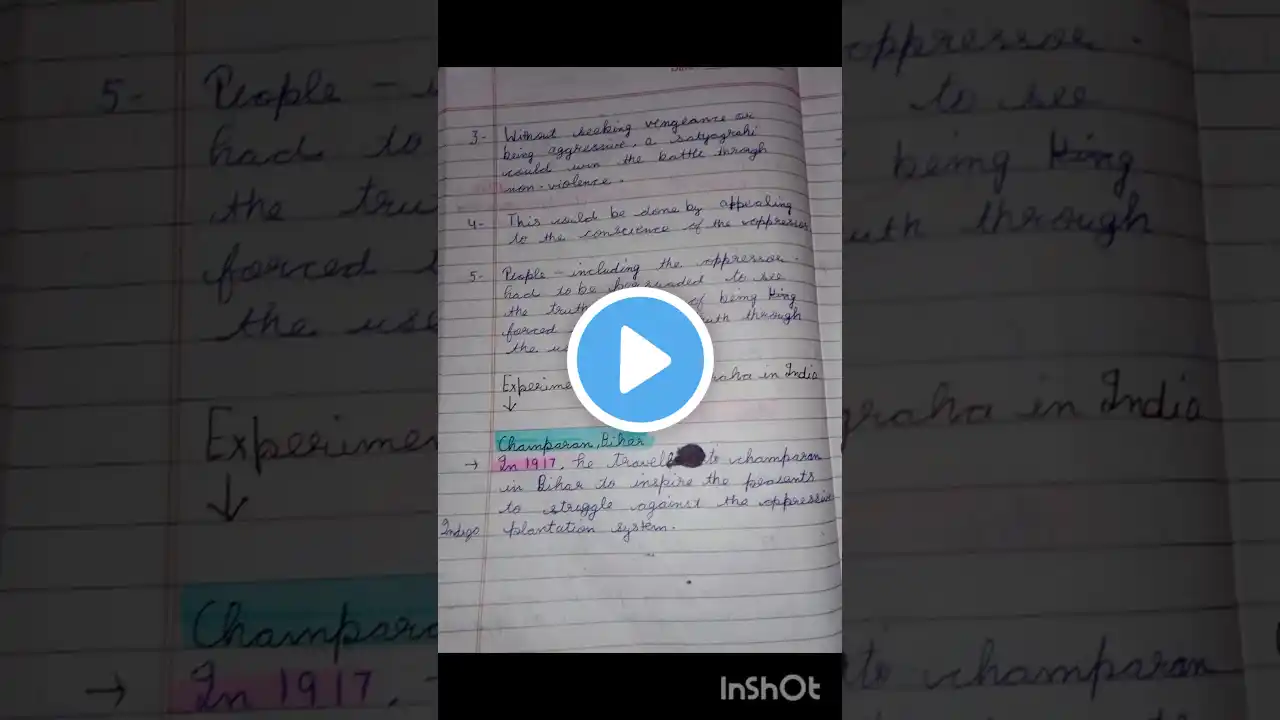 3- Without seeking vengeance or
being aggressive, a satyagrahi
could win the battle through
non-violence.
4- This could be done by appealing
to the conscience of the oppressor
5- People - including the oppressor -
had to be persuaded to see
the of being
forced through
the
in India
↓
Champaran, Bihar
→ In 1917, he to champaran
in Bihar to inspire the peasants
to struggle against the oppressive
Indigo plantation system.
InShOt